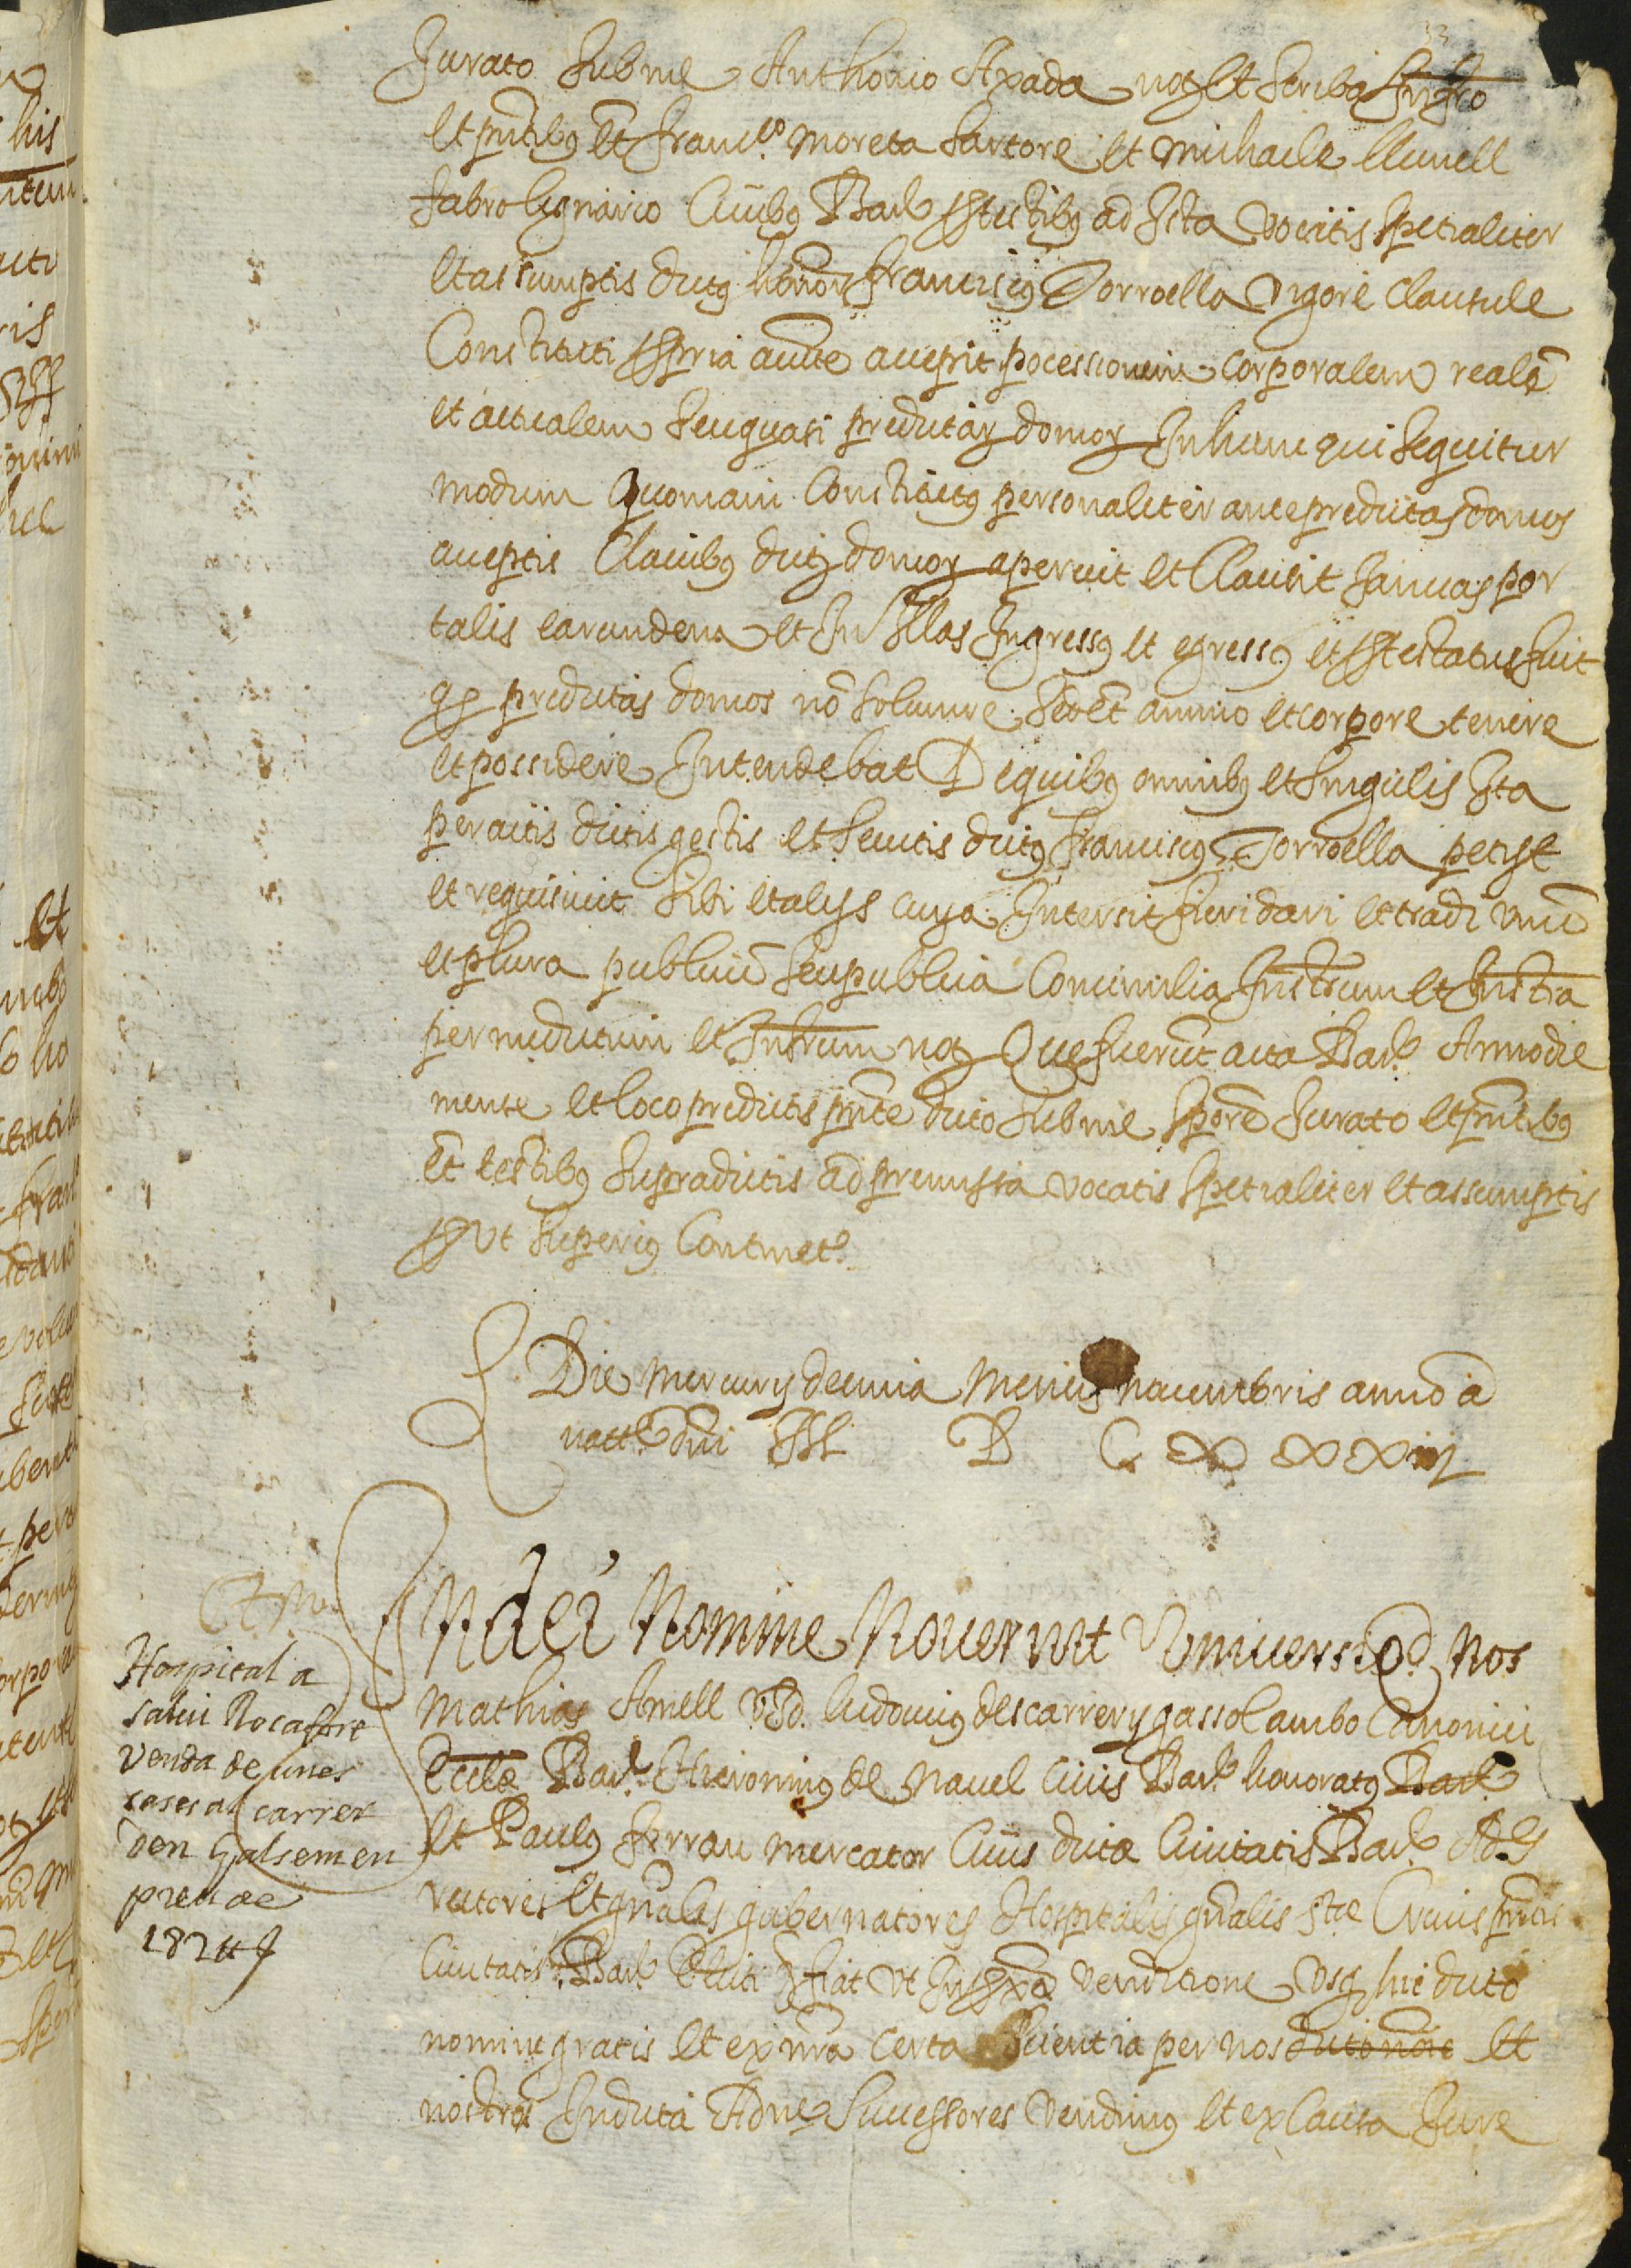 Jurato sub me Anthonio Axada not et scriba infro
et pntibq et Franco Moreta sartore et Michaele Llunell
fabro lignario Civibq Barã ptestibq ad Ista vocatis spetialiter
et assumptis dictq honor Franciscq Torroella vigore clausule
Constituti ppria aucte accepit pocessionem corporalem realẽ
et actualem seu quasi predictaȝ domoȝ In hunc qui sequitur
modum Quoniam Constitutq personaliter ante predictas domos
acceptis Clavibq dictȝ domoȝ aperuit et Clausit Januas por
talis earundem et In Illas Ingressq et egressq et ptestatus fuit
qp predictas domos nõ solum re sed et animo et corpore tenere
et possidere Intendebat De quibq omnibq et singulis Ita
peractis dictis gestis et secutis dictq Franciscq Torroella petijt
et requisivit sibi et alijs cuya Intersit fieri dari et tradi unũ
et plura publicũ seu publica Concimilia Instrum et Instra
per me dictum et Infrum not Que fuerũt acta Barã Anno die
mense et loco predictis pnte dicto sub me sporẽ Jurato et pntibq
et testibq supradictis ad premissa vocatis spetialiter et assumptis
put superiq Continetr
Die mercurij decima Mensis novembris anno a
natte dni M D C xx xx iiij
In dei Nomine Noverint Universi Qd Nos
Mathias Amell V.J.d. Ludovicq descarrery gassol ambo Canonici
Eccle Barã Hieronimq de Navel Civis Barã honoratq Barã
et Paulq Ferran mercator Civis dicte Civitatis Barã Ad
rectores et gnales gubernatores Hospitalis gnalis ste Crucis pntis
Civitatis Barã
nomine gratis et ex nra certa scientia per nos dicto noie et
nostros In dicta Adne successores vendimq et ex Causa Jure
Hospital a
salvi Rocafort
venda de unes
cases al carrer
den Galsemen
preu de
182 ℔ J